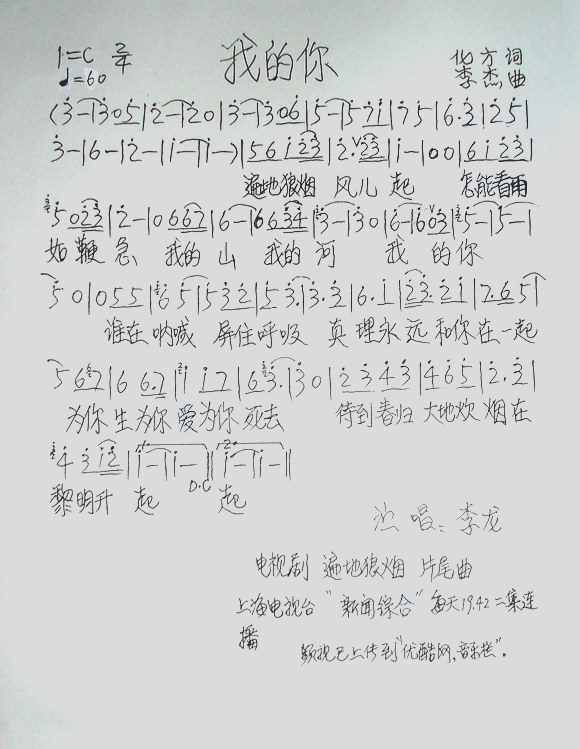 我的你
1=C 2/4
♩=60
化方 词
李杰 曲
(3-|305|2-|20|3-|306|5-|571|75|6·3|25|
3-|6-|2-|1-|1-)|56123|2·23|1-|00|6123|
遍地狼烟 风儿 起 怎能看雨
5023|2-|0667|6-|6634|3-|30|6-|603|5-|5-|
如鞭急 我的 山 我的 河 我 的你
50|055|65|532|53·|3·3|6·1|23·21|7·65|
谁在呐喊 屏住呼吸 真理永远和你在一起
567|6 67|1 17|63·|30|2343|465|2·3|
为你生为你爱为你死去 待到春归 大地炊烟在
4 312|1-|1-|1-|1-||
黎明升 起 D.C 起
演唱:李龙
电视剧 遍地狼烟 片尾曲
上海电视台"新闻综合"每天19.42二集连
播
频视已上传到"优酷网,音乐栏".